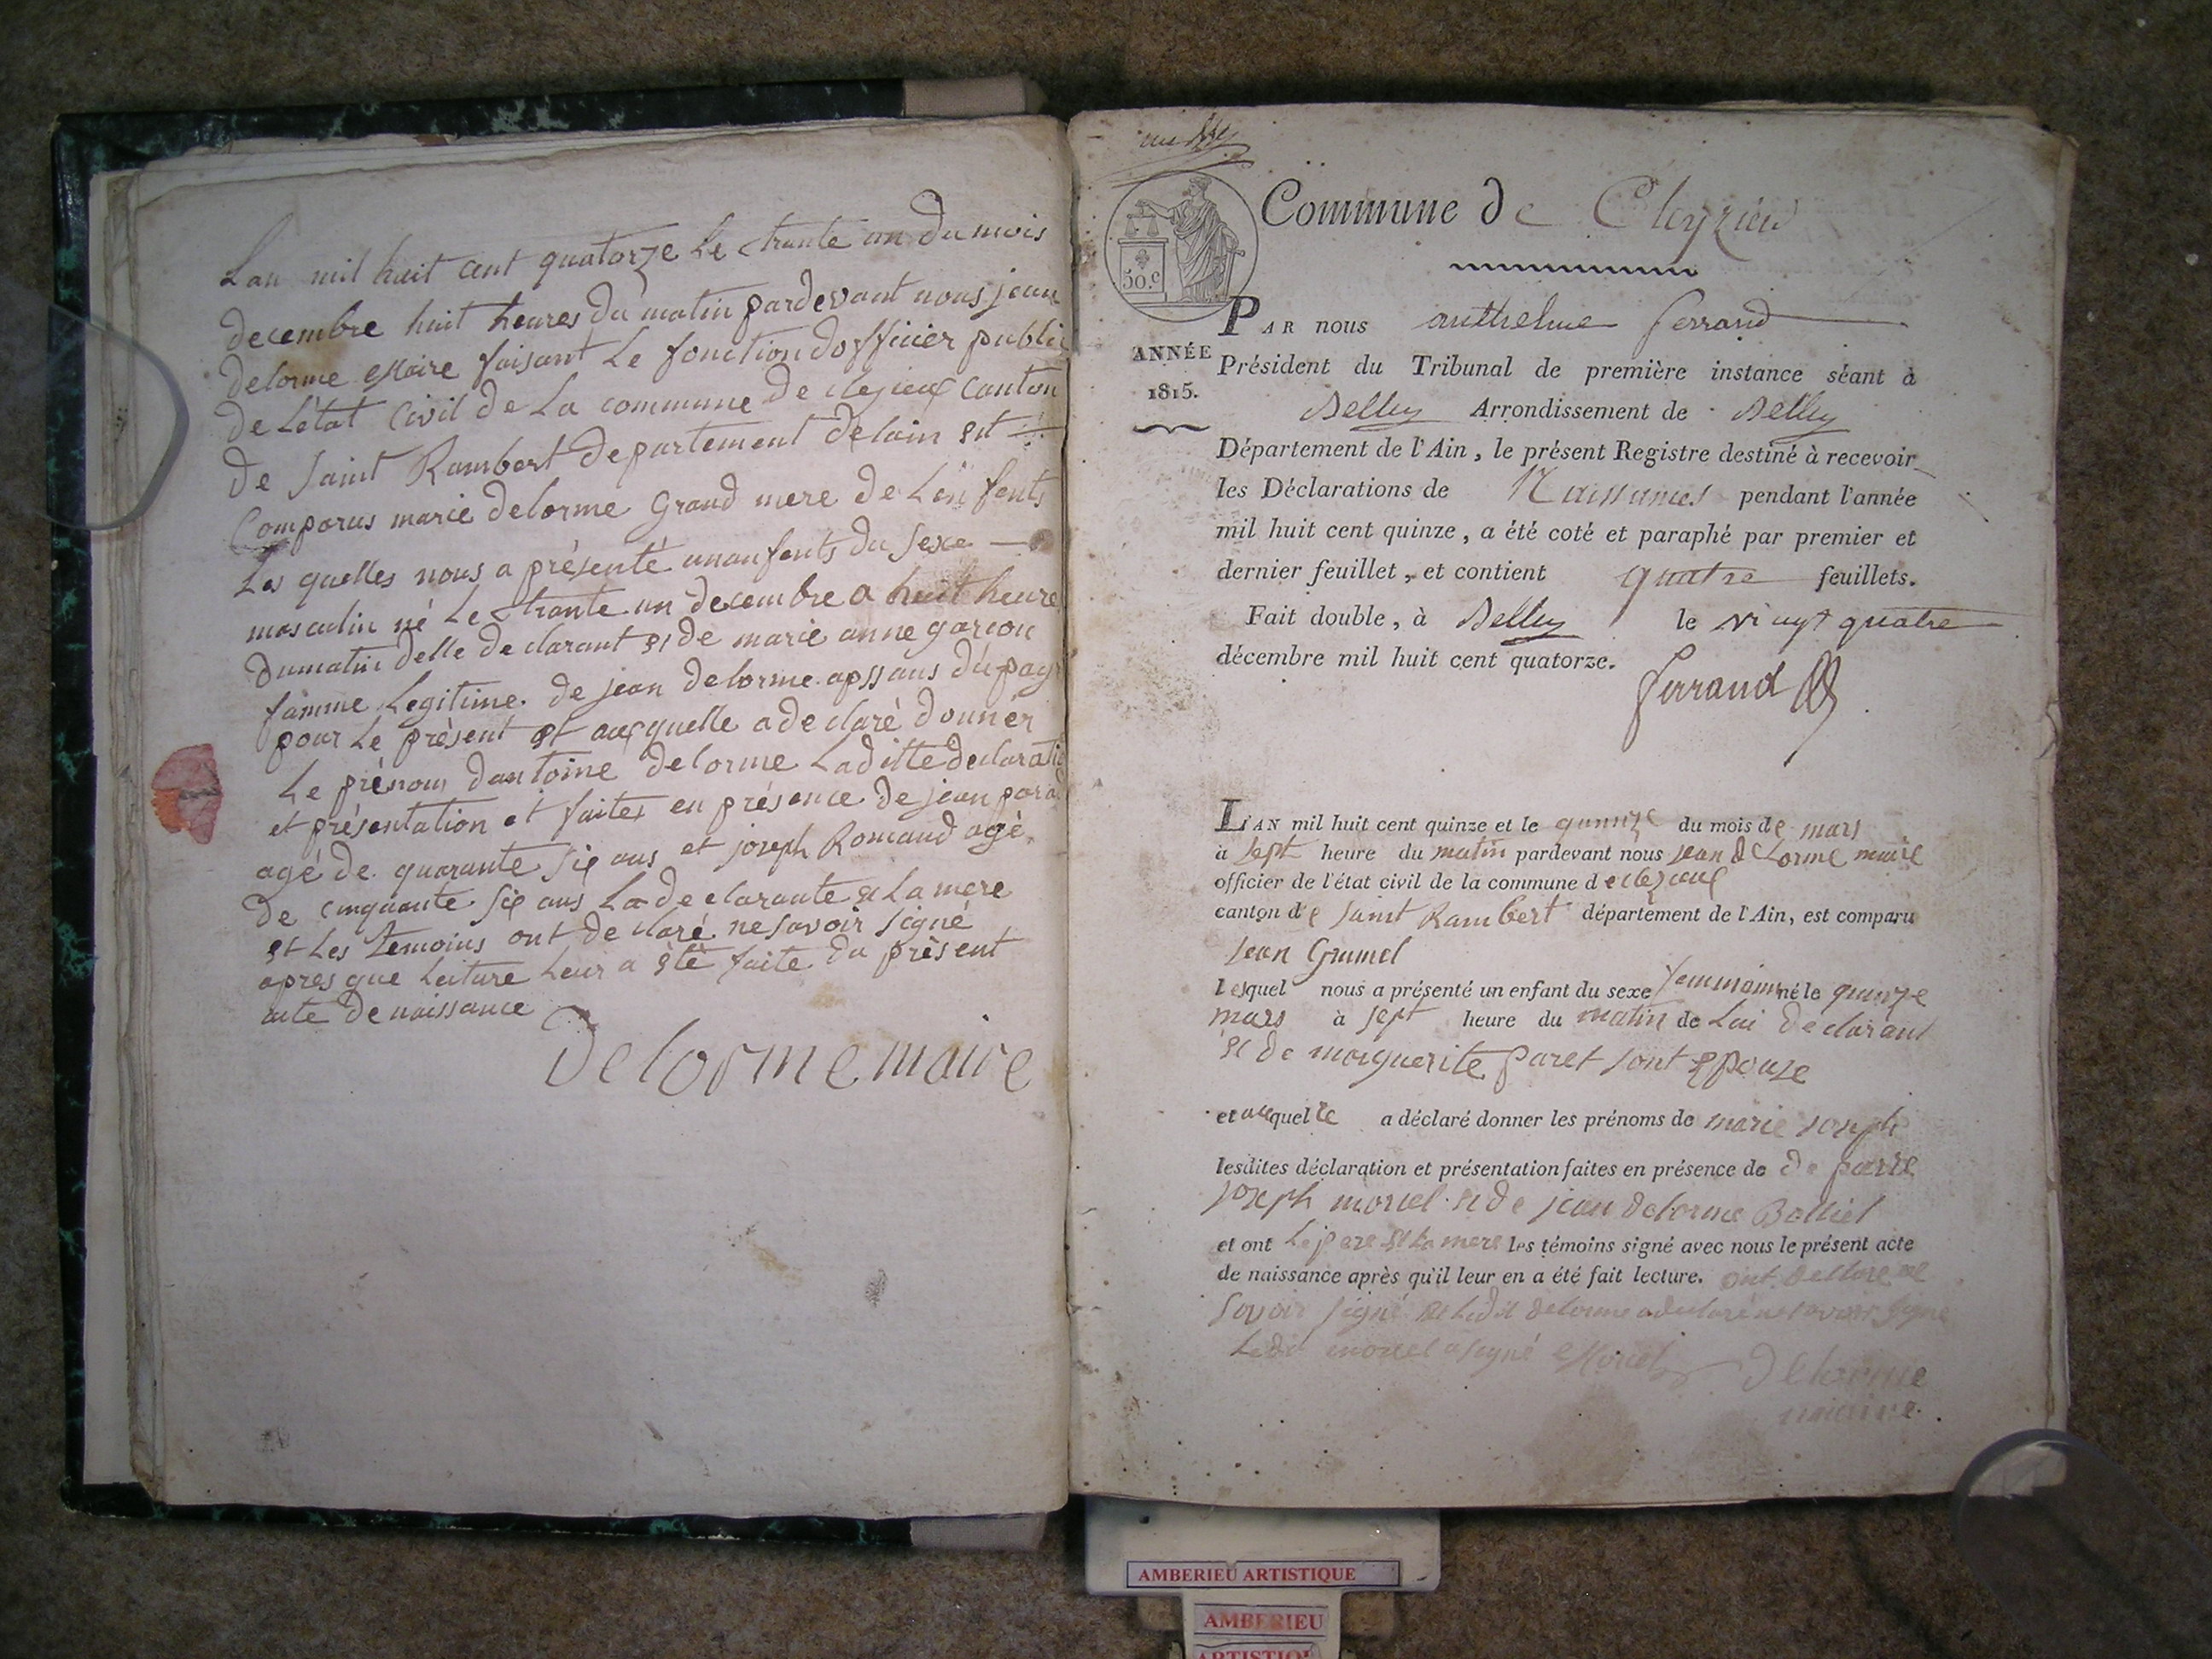 Lan mil huit cent quatorze Le trante un du mois
decembre huit heures du matin pardevant nous jean
delorme Maire faisant Le fonction dofficier public
de Létat Civil de La commune de clezieux Canton
de Saint Rambert departement delain est
Comparus marie delorme Grand mere de Lenfents
Les quelles nous a présenté unanfents du Sexe
masculin né Le trante un decembre a huit heure
dumatin delle declarant et de marie anne garion
famme Legitime de jean delorme apssans dupays
pour Le présent et auxquelle a declaré donner
Le prénom dantoine delorme Laditte declaratio
et présentation et faites en présence de jean
agé de quarante six ans et joseph Romand agé
de cinquante six ans La declarante et La mere
et Les temoins ont declaré ne savoir signé
apres que Lecture Leur a été faite du présent
acte de naissance
Delorme maire
Commune de Cleyzieu
PAR nous anthelme ferrand
ANNÉE
1815.
50.c
Président du Tribunal de première instance séant à
Belley Arrondissement de Belley
Département de l'Ain, le présent Registre destiné à recevoir
les Déclarations de Naissances pendant l'année
mil huit cent quinze, a été coté et paraphé par premier et
dernier feuillet, et contient quatre feuillets.
Fait double, à Belley le vingt quatre
décembre mil huit cent quatorze.
ferrand
L'AN mil huit cent quinze et le quinze du mois de mars
à sept heure du matin pardevant nous jean deLorme maire
officier de l'état civil de la commune de clezieux
canton de saint Rambert département de l'Ain, est comparu
jean Grumel
lesquel nous a présenté un enfant du sexe femminin né le quinze
mars à sept heure du matin de Lui declarant
et de marguerite paret sont epouze
et auquelle a déclaré donner les prénoms de marie joseph
lesdites déclaration et présentation faites en présence de de pierre
joseph morel et de jean delorme Bolliet
et ont Le pere et La mere les témoins signé avec nous le présent acte
de naissance après qu'il leur en a été fait lecture. ont declare ne
savoir signé et Ledit delorme a declaré ne savoir signe
Ledit morel a signé Morel Delorme
maire.
AMBERIEU ARTISTIQUE
AMBERIEU
ARTISTIQUE